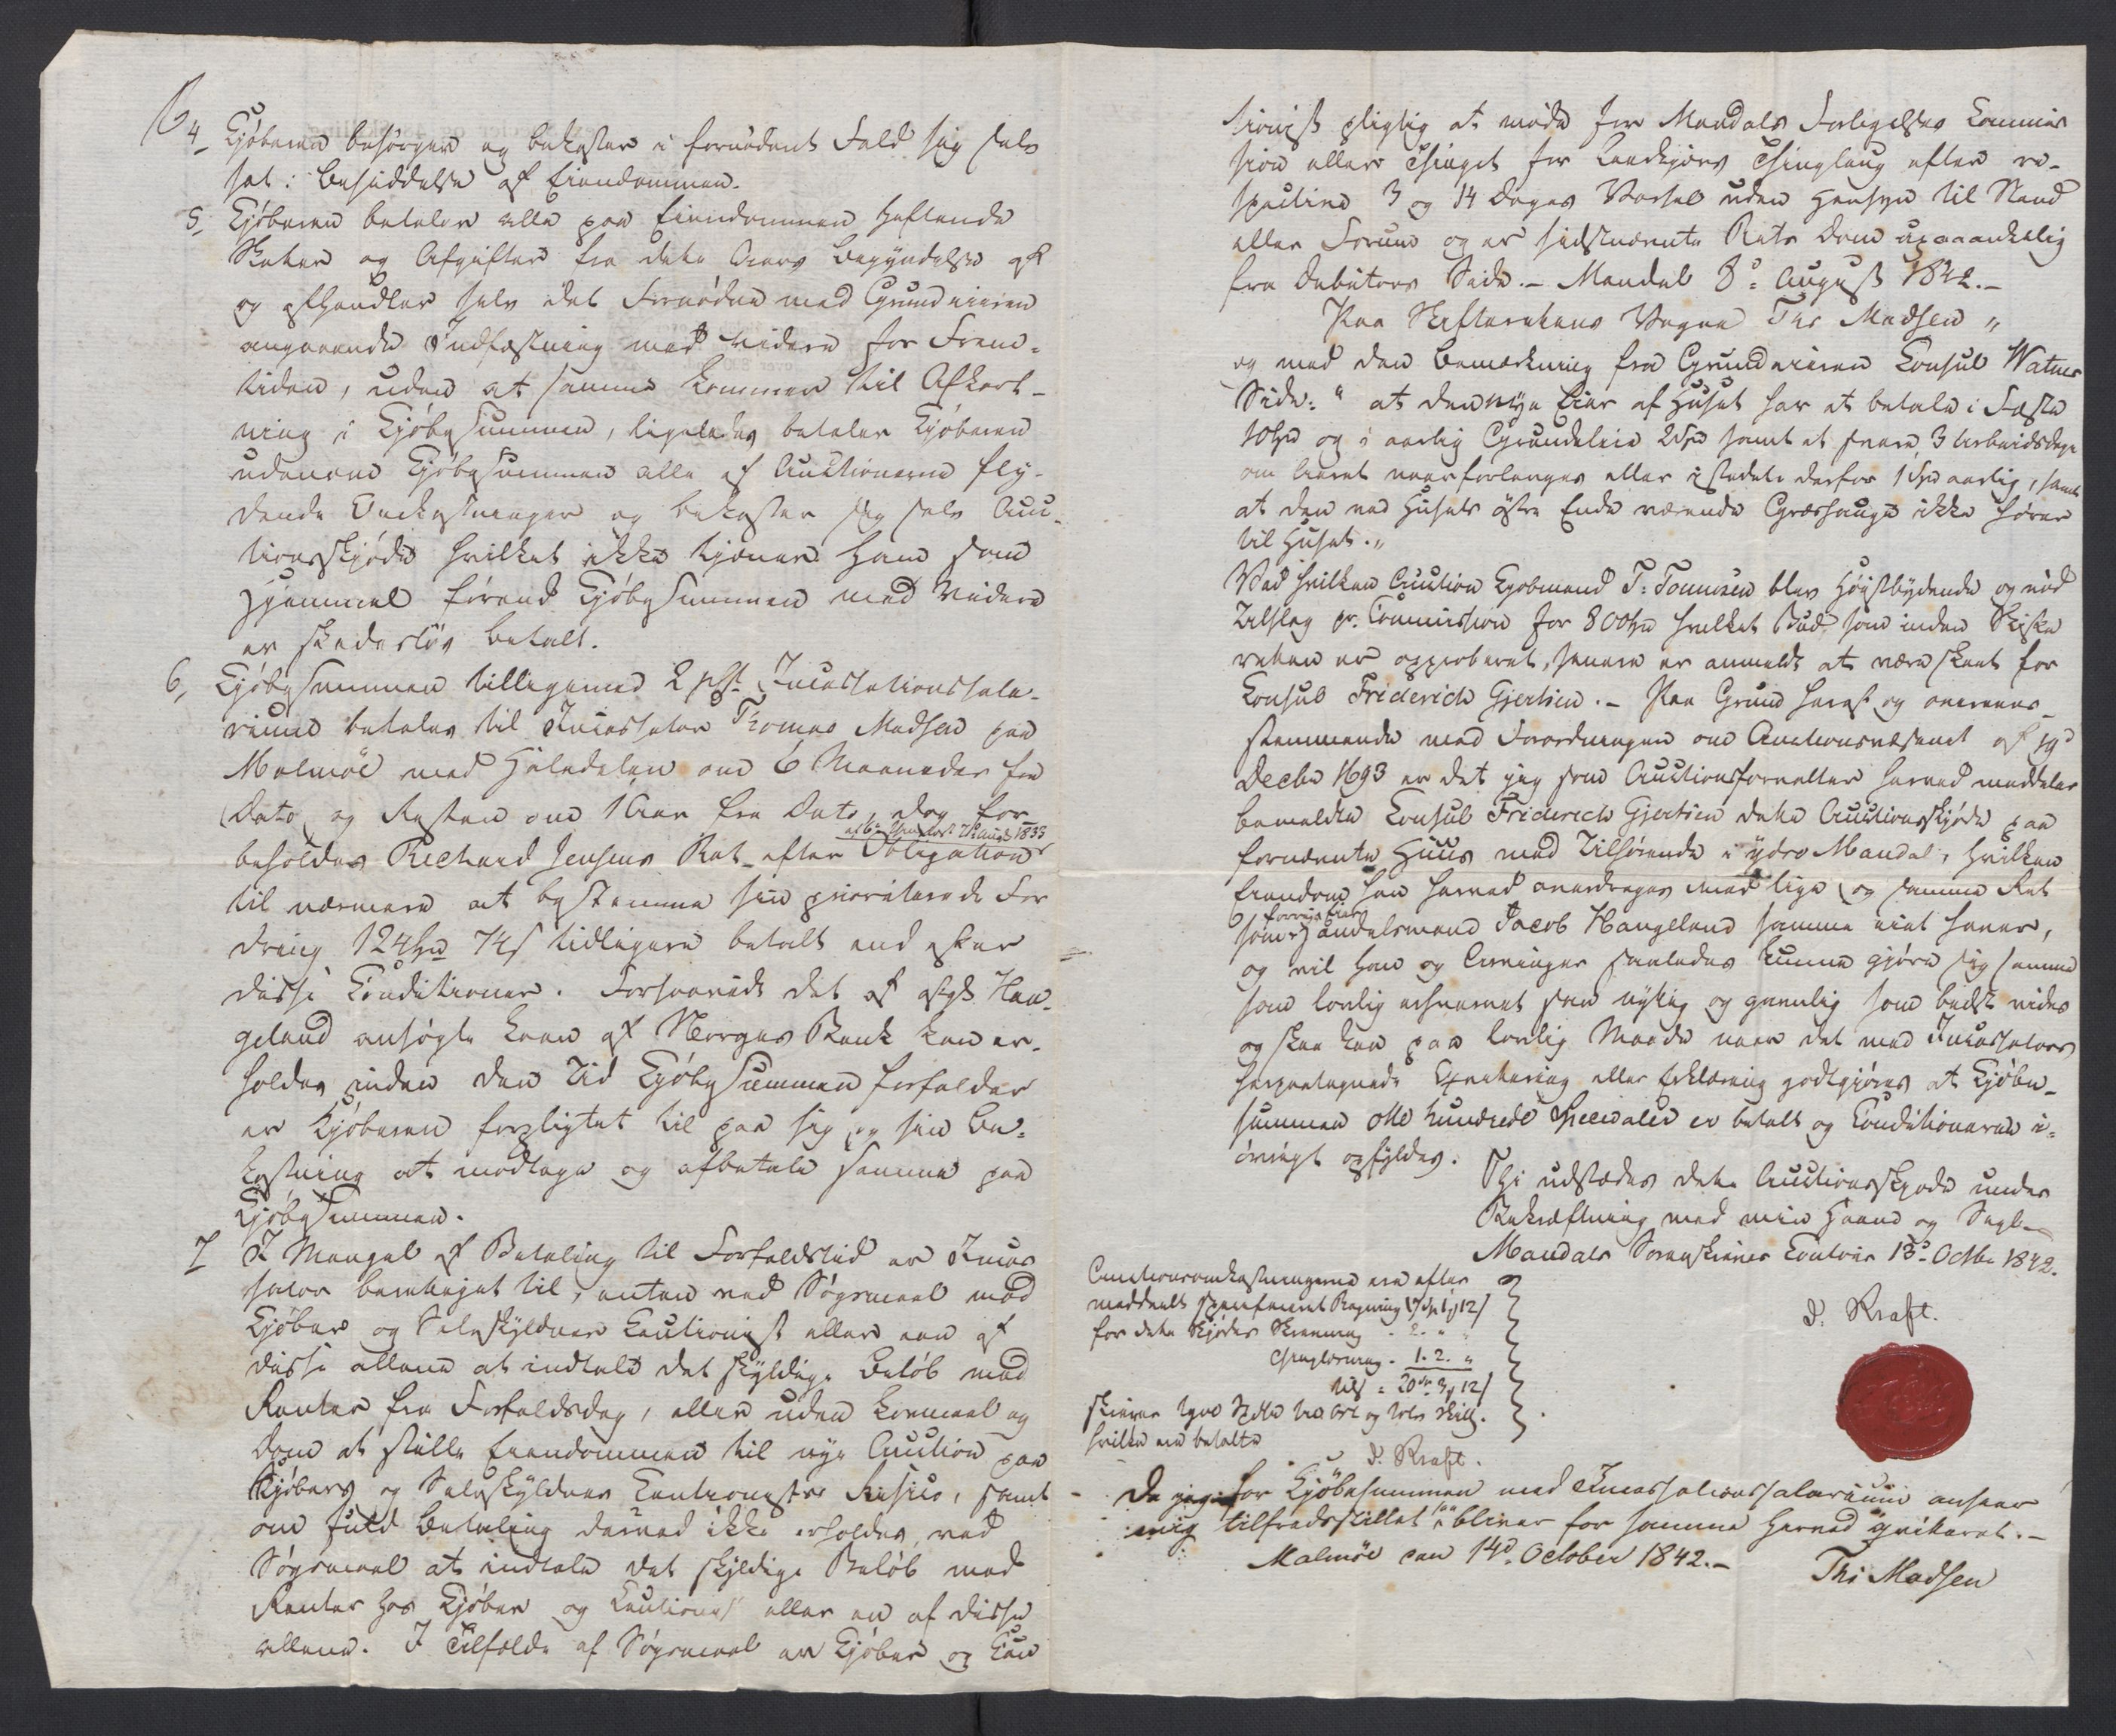 4, Kjøberen besørger og bekoster i fornødent Fald sig selv
sat i Besiddelse af Eiendommen.
5, Kjøberen betaler alle paa Eiendommen heftende
Skatter og Afgifter fra dette Aars Begyndelse
og afhandler selv det Fornødne med Grundeieren
angaaende Indfæstning med videre for Frem-
tiden, uden at samme kommer til Afkort-
ning i Kjøbesummen, ligeledes betaler Kjøberen
udenom Kjøbesummen alle af Auctionerne fly-
dende Omkostninger og bekoster sig selv Auc-
tionsskjøde hvilket ikke tjener ham som
Hjemmel førend Kjøbesummen med Videre
er skadesløs betalt.
6, Kjøbesummen tilligemed 2 pCt. Incassationssala-
rium betales til Incassator Thomas Madsen paa
Malmöe med Halvdelen om 6 Maaneder fra
Dato og Resten om 1 Aar fra Dato, dog for
beholdes Richard Jensens Ret efter Obligation
til nærmere at bestemme sin prioriterede For
dring 124 Spd 74 s tidligere betalt end efter
disse Conditioner. Forsaavidt det af afgk Han-
geland ansøgte Laan af Norges Bank kan er-
holdes inden den Tid Kjøbesummen forfalder
er Kjøberen forpligtet til paa sig og sin Be-
kostning at modtage og afbetale samme paa
Kjøbesummen.
7 I Mangel af Betaling til Forfaldstid er Incas
sator berettiget til, enten ved Søgsmaal mod
Kjøber og Selvskyldner Cautionist eller een af
disse allene at indtale det skyldige Beløb med
Renter fra Forfaldsdag, eller uden Lovmaal og
Dom at stille Eiendommen til nye Auction paa
Kjøbers og Selvskyldner Cautionistes Risico, samt
om fuld Betaling derved ikke erholdes, ved
Søgsmaal at indtale det skyldige Beløb med
Renter hos Kjøber og Cautionist eller en af disse
allene. I Tilfælde af Søgsmaal er Kjøber og Cau
tionist pligtig at møde for Mandals Forligelses Commis
sion eller Thinget for Thinglaug efter re-
spective 3 og 14 Dages Varsel uden Hensyn til Stand
eller Forum og er sidstnævnte Rets Dom upaaankelig
fra Debitors Side. – Mandal 8de August 1842. –
Paa Skifterettens Vegne Ths Madsen „
og med den Bemærkning fra Grundeieren Consul Watnes
Side: " at den nye Eier af Huset har at betale i Fæste
10 Spd og i aarlig Grundeleie 2 Spd samt at præstere 3 Arbeidsdage
om Aaret naar forlanges eller istedet derfor 1 Spd aarlig, samt
at den ved Husets østre Ende værende Græshauge ikke hører
til Huset. „
Ved hvilken Auction Kjøbmand T. Tonnesen blev Høistbydende og nød
Tilslag pr. Commission for 800 Spd hvilket Bud som inden Skifte
retten er approberet, senere er anmeldt at være skeet for
Consul Friderich Gjertsen. – Paa Grund heraf og overeens-
stemmende med Forordningen om Auctionsvæsenet af 19d
Decbr 1693 er det jeg som Auctionsforvalter herved meddeler
bemeldte Consul Friderich Gjertsen dette Auctionsskjøde paa
fornævnte Huus med Tilhørende i ydre Mandal, hvilken
Eiendom han herved overdrages med lige og samme Ret
som forrige Eier Handelsmand Jacob Hangeland samme eiet haver,
og vil han og Arvinger saaledes kunne gjøre sig samme
som lovlig erhvervet saa nyttig og gavnlig som bedst vides
og skee kan paa lovlig Maade naar det med Incassators
herpaategnede Qvittering eller Erklæring godtgjøres at Kjøbe-
summen otte hundrede Speciedaler er betalt og Conditionerne i-
øvrigt opfyldes.
Thi udstædes dette Auctionsskjøde under
Bekræftning med min Haand og Segl.
Mandals Sorenskriver Contoir 13de Octbr 1842.
D. Kraft.
Auctionsomkostningerne ere efter
meddeelt specificeret Regning
for dette Skjødes Skrivning 2. „ „
Thinglæsning. 1. 2. „
tils = 20 Sp 3 12 s
skriver tyve Spdlr tre Ort og tolv Skill.
hvilke ere betalte
D. Kraft.
Da jeg for Kjöbesummen med Incassationssalarium anseer
mig tilfredsstillet bliver for samme herved qviteret. –
Malmöe den 14d October 1842. –
Ths Madsen